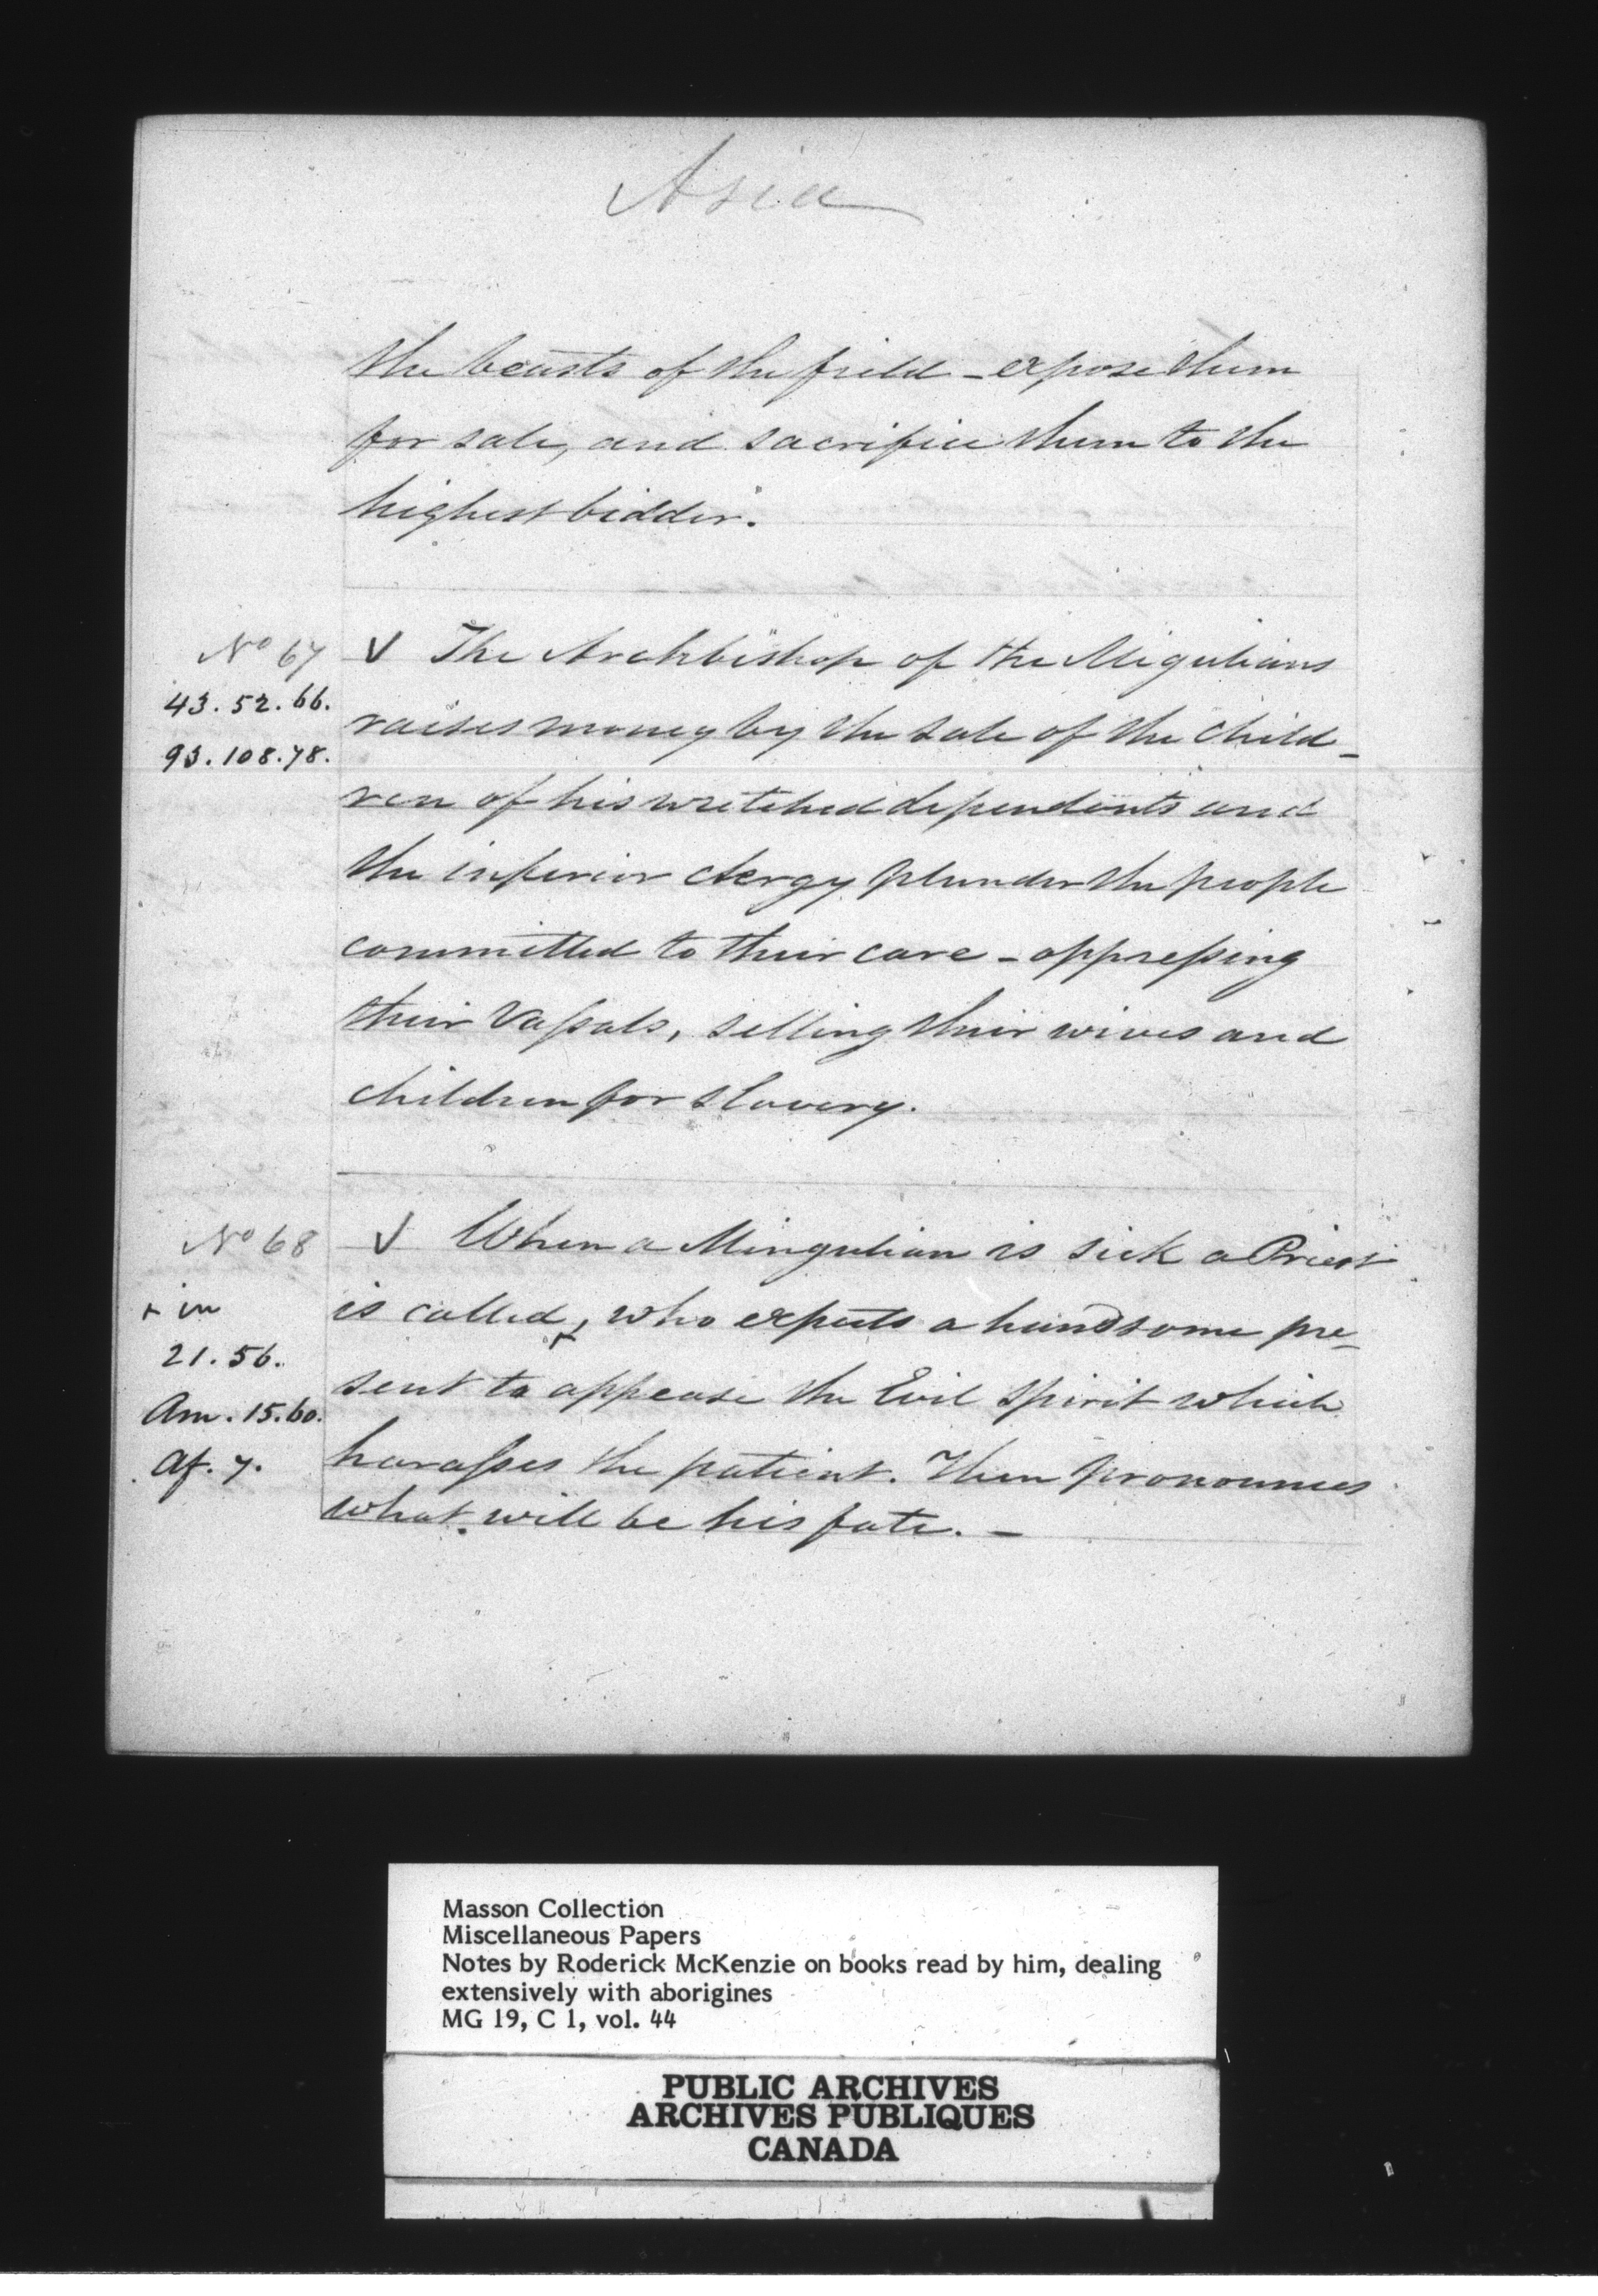 Asia
the beasts of the field - expose them
for sale, and sacrifice them to the
highest bidder.
No 67
43. 52. 66.
93. 108. 78.
V The Archbishop of the Migulians
raises money by the sale of the child-
ren of his wretched dependents and
the inferior clergy plunder the people
committed to their care - oppreſsing
their Vaſsals, selling their wives and
children for slavery.
No 68
+ in
21. 56.
Am. 15. 60.
Af. 7.
V When a Mingulian is sick a Priest
is called, + who expects a handsome pre-
sent to appease the Evil Spirit which
haraſses the patient. Then pronounces
what will be his fate. -
Masson Collection
Miscellaneous Papers
Notes by Roderick McKenzie on books read by him, dealing
extensively with aborigines
MG 19, C 1, vol. 44
PUBLIC ARCHIVES
ARCHIVES PUBLIQUES
CANADA